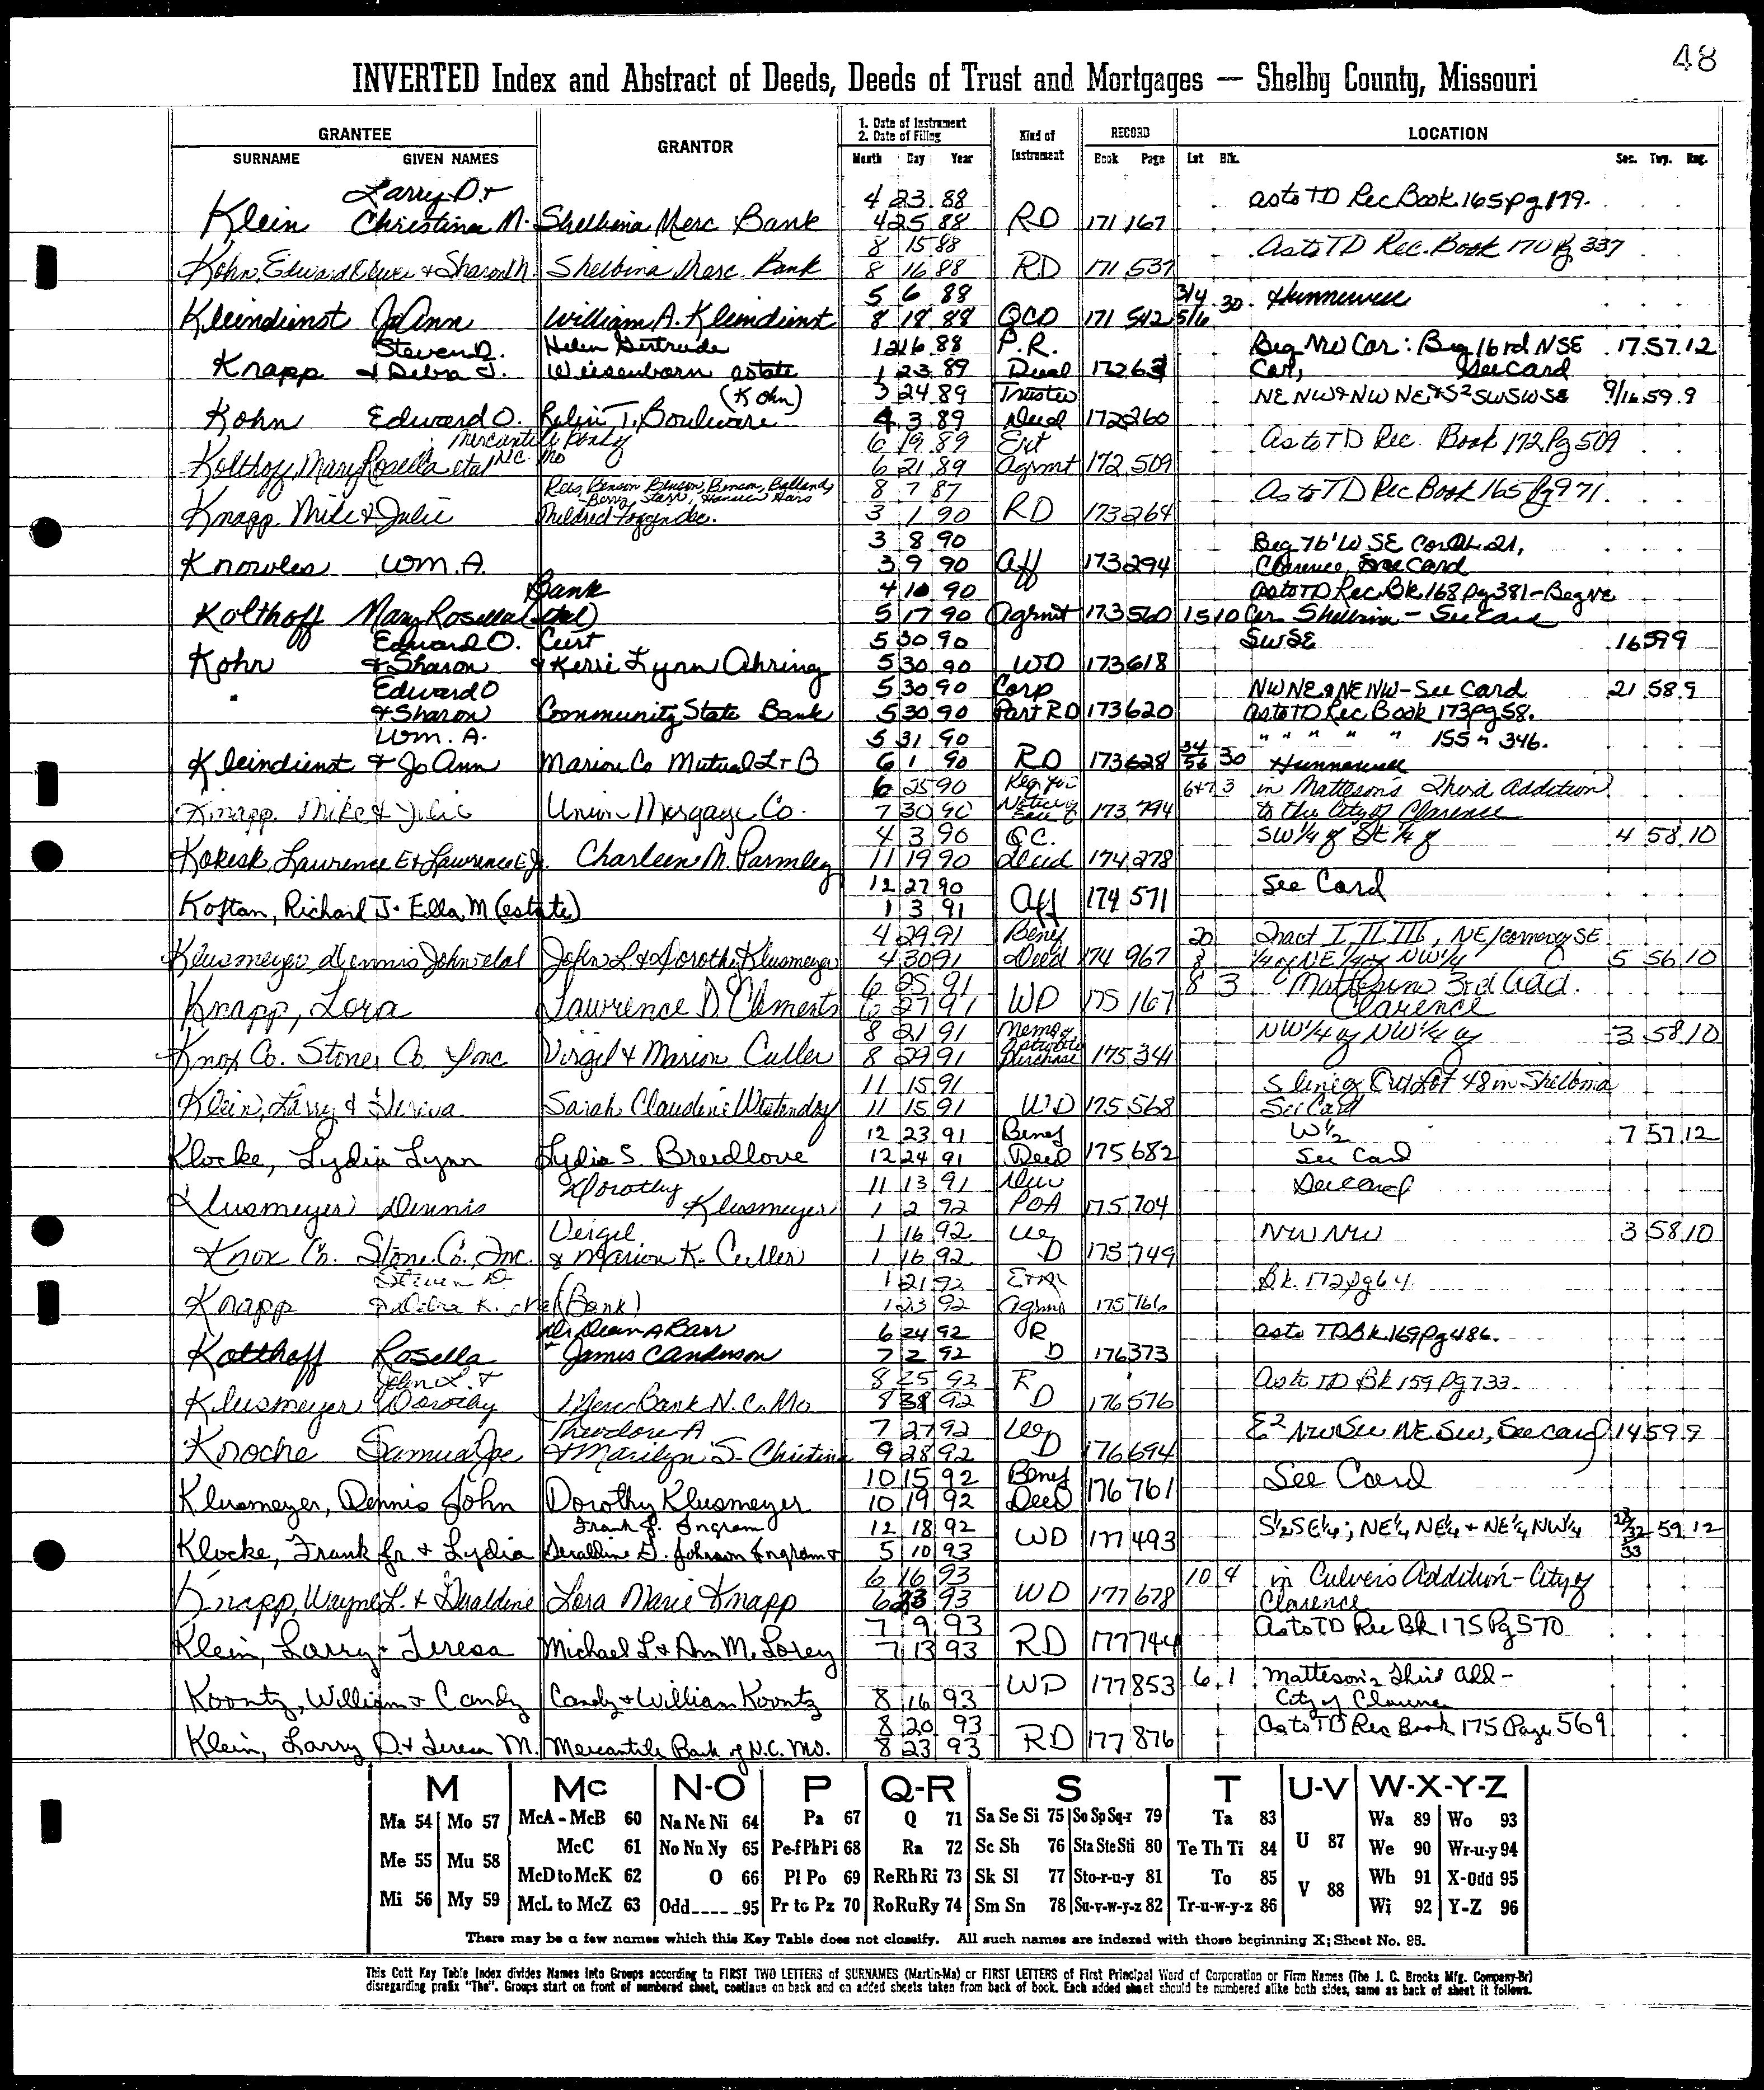 48
INVERTED Index and Abstract of Deeds, Deeds of Trust and Mortgages — Shelby County, Missouri
GRANTEE GRANTOR 1. Date of Instrument 2. Date of Filing Kind of Instrument RECORD LOCATION
SURNAME GIVEN NAMES Month Day Year Book Page Lot Blk. Sec. Twp. Rng.
Larry D. + 4 23 88 as to TD Rec Book 165 pg 179.
Klein Christina M. Shelbina Merc Bank 4 25 88 RD 171 167
8 15 88 As to TD Rec. Book 170 Pg 337
Kohn, Edward & Sharon N. Shelbina Merc. Bank 8 16 88 RD 171 537
5 6 88 3/4 30 Hunnewell
Kleindienst JoAnn William A. Kleindienst 8 18 88 QCD 171 542 5/6
Steven D. Helen Gertrude 12 16 88 P.R. Beg NW Cor: Beg 16 rd NSE 17 57 12
Knapp & Debra J. Weisenborn estate 1 23 89 Deed 172 63 Cor, See Card
(Kohn) 3 24 89 Trustee NE NW & NW NE & S2 SW SW SE 9/16 59 9
Kohn Edward O. Robin T. Boulware 4 3 89 Deed 172 260
Mercantile Bank of 6 19 89 Ext As to TD Rec. Book 172 Pg 509
Kolthoff, Mary Rosella etal N.C. Mo 6 21 89 Agrmt 172 509
Reis, Benson, Benson, Benson, Balland, 8 7 87 As to TD Rec Book 165 Pg 971
Berry, Starr, Hansen
Knapp Mike & Julie Mildred 3 1 90 RD 173 264
3 8 90 Beg 76' W SE Cor 21,
Knowles Wm. A. 3 9 90 Aff 173 294 Clarence, See Card
Bank 4 10 90 as to TD Rec Bk 168 pg 381 - Beg NE
Kolthoff Mary Rosella (etal) 5 17 90 Agrmt 173 560 15 10 Cor Shelbina - See Card
Edward O. Curt 5 30 90 SW SE 16 59 9
Kohn & Sharon & Kerri Lynn Ahring 5 30 90 WD 173 618
Edward O 5 30 90 Corp NW NE & NE NW - See Card 21 58 9
" & Sharon Community State Bank 5 30 90 Part RD 173 620 as to TD Rec Book 173 pg 58.
Wm. A. 5 31 90 " " " " " 155 " 346.
Kleindienst & JoAnn Marion Co Mutual L+B 6 1 90 RD 173 628 34 56 30 Hunnewell
6 25 90 Req for 6&7 3 in Matteson's Third Addition
Knapp Mike & Julie Union Morgage Co. 7 30 90 Notice of Sale 173 794 to the City of Clarence
4 3 90 Q.C. SW 1/4 of SE 1/4 of 4 58 10
Kokesh, Lawrence E & Lawrence E Jr. Charleen M. Parmley 11 19 90 Deed 174 278
12 27 90 See Card
Koftan, Richard J. Ella M (estate) 1 3 91 Aff 174 571
4 29 91 Benef 20 Tract I II III, NE/corner of SE
Klusmeyer Dennis John etal John L & Dorothy Klusmeyer 4 30 91 Deed 174 967 8 1/4 of NE 1/4 of NW 1/4 5 56 10
6 25 91 8 3 Mattesons 3rd Add.
Knapp, Lora Lawrence D. Clements 6 27 91 WD 175 167 Clarence
8 21 91 Memo of NW 1/4 of NW 1/4 of 3 58 10
Knox Co. Stone Co. Inc Virgil & Marion Culler 8 29 91 Option to Purchase 175 341
11 15 91 S line of Out Lot 48 in Shelbina
Klein, Larry & Teresa Sarah Claudine Westenday 11 15 91 WD 175 568 See Card
12 23 91 Benef W 1/2 7 57 12
Klocke, Lydia Lynn Lydia S. Breedlove 12 24 91 Deed 175 682 See Card
Dorothy 11 13 91 Dur See Card
Klusmeyer Dennis Klusmeyer 1 2 92 POA 175 704
Virgil 1 16 92 W NW NW 3 58 10
Knox Co. Stone Co., Inc. & Marion K. Culler 1 16 92 D 175 749
Steven D 1 21 92 Extn Bk. 172 pg 64.
Knapp & Debra K. (Bank) 1 23 92 Agrmt 175 766
Dr Dean A Barr 6 24 92 R as to TD Bk 169 Pg 486.
Kolthoff Rosella & James C Anderson 7 2 92 D 176 373
John L. & 8 25 92 R As to TD Bk 159 Pg 733.
Klusmeyer Dorothy Merc Bank N.C. Mo 8 31 92 D 176 576
Theodore A 7 27 92 W E2 NW SW NE SW, See card 14 59 9
Knoche Samuel Joe & Marilyn S. Christine 9 28 92 D 176 694
10 15 92 Benef See Card
Klusmeyer, Dennis John Dorothy Klusmeyer 10 19 92 Deed 176 761
Frank J. Ingram 12 18 92 S 1/2 SE 1/4; NE 1/4 NE 1/4 + NE 1/4 NW 1/4 32 59 12
Klocke, Frank Jr. & Lydia Geraldine D. Johnson Ingram & 5 10 93 WD 177 493 33
6 16 93 10 4 in Culver's Addition - City of
Knapp, Wayne L. & Geraldine Lora Marie Knapp 6 23 93 WD 177 678 Clarence
7 9 93 As to TD Rec Bk 175 Pg 570
Klein, Larry & Teresa Michael L. & Ann M. Lorey 7 13 93 RD 177 744
WD 177 853 6 1 Matteson's Third Add -
Koontz, William & Candy Candy & William Koontz 8 16 93 City of Clarence
8 20 93 As to TD Rec Book 175 Page 569
Klein, Larry D. & Teresa M. Mercantile Bank of N.C. Mo. 8 23 93 RD 177 876
M Mc N-O P Q-R S T U-V W-X-Y-Z
Ma 54 Mo 57 McA - McB 60 Na Ne Ni 64 Pa 67 Q 71 Sa Se Si 75 So Sp Sq-r 79 Ta 83 Wa 89 Wo 93
McC 61 No Nu Ny 65 Pe-f Ph Pi 68 Ra 72 Sc Sh 76 Sta Ste Sti 80 Te Th Ti 84 U 87 We 90 Wr-u-y 94
Me 55 Mu 58 McD to McK 62 O 66 Pl Po 69 Re Rh Ri 73 Sk Sl 77 Sto-r-u-y 81 To 85 Wh 91 X-Odd 95
Mi 56 My 59 McL to McZ 63 Odd-----95 Pr to Pz 70 Ro Ru Ry 74 Sm Sn 78 Su-v-w-y-z 82 Tr-u-w-y-z 86 V 88 Wi 92 Y-Z 96
There may be a few names which this Key Table does not classify. All such names are indexed with those beginning X; Sheet No. 95.
This Cott Key Table Index divides Names into Groups according to FIRST TWO LETTERS of SURNAMES (Martin-Ma) or FIRST LETTERS of First Principal Word of Corporation or Firm Names (The J. C. Brooks Mfg. Company-Br)
disregarding prefix "The". Groups start on front of numbered sheet, continue on back and on added sheets taken from back of book. Each added sheet should be numbered alike both sides, same as back of sheet it follows.